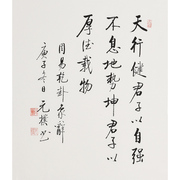 天行健君子以自强
不息地勢坤君子以
厚德載物
周易乾卦象辭
庚子冬日